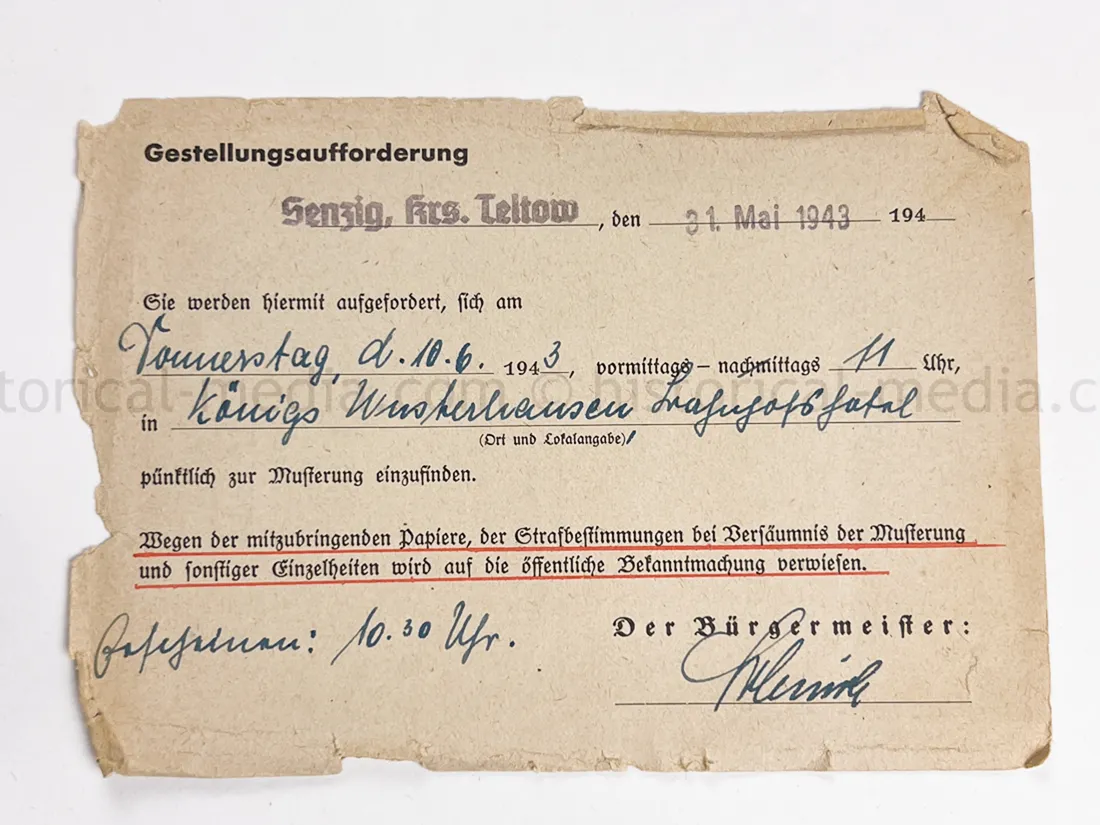 Gestellungsaufforderung
Senzig, Krs. Teltow, den 31. Mai 1943 194
Sie werden hiermit aufgefordert, sich am
Donnerstag, d. 10.6. 1943, vormittags – nachmittags 11 Uhr,
in Königs Wusterhausen, Bahnhofshotel
(Ort und Lokalangabe)
pünktlich zur Musterung einzufinden.
Wegen der mitzubringenden Papiere, der Strafbestimmungen bei Versäumnis der Musterung
und sonstiger Einzelheiten wird auf die öffentliche Bekanntmachung verwiesen.
Erscheinen: 10.30 Uhr.
Der Bürgermeister:
historical-media.com © historical-media.c